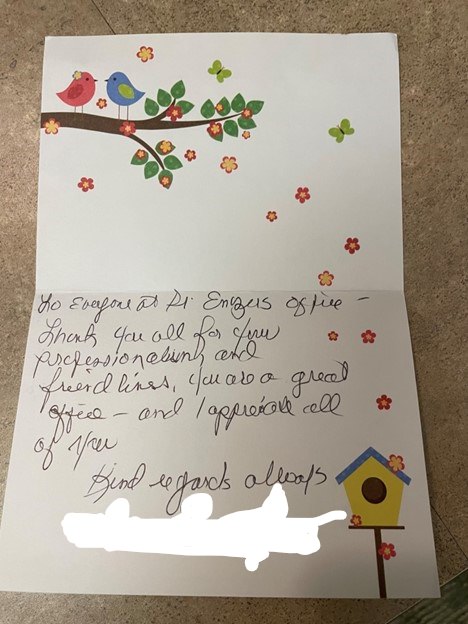 To Everyone at Dr. Enizers office –
Thank you all for your
professionalism and
friendliness, you are a great
office – and I appreciate all
of you
Kind regards always